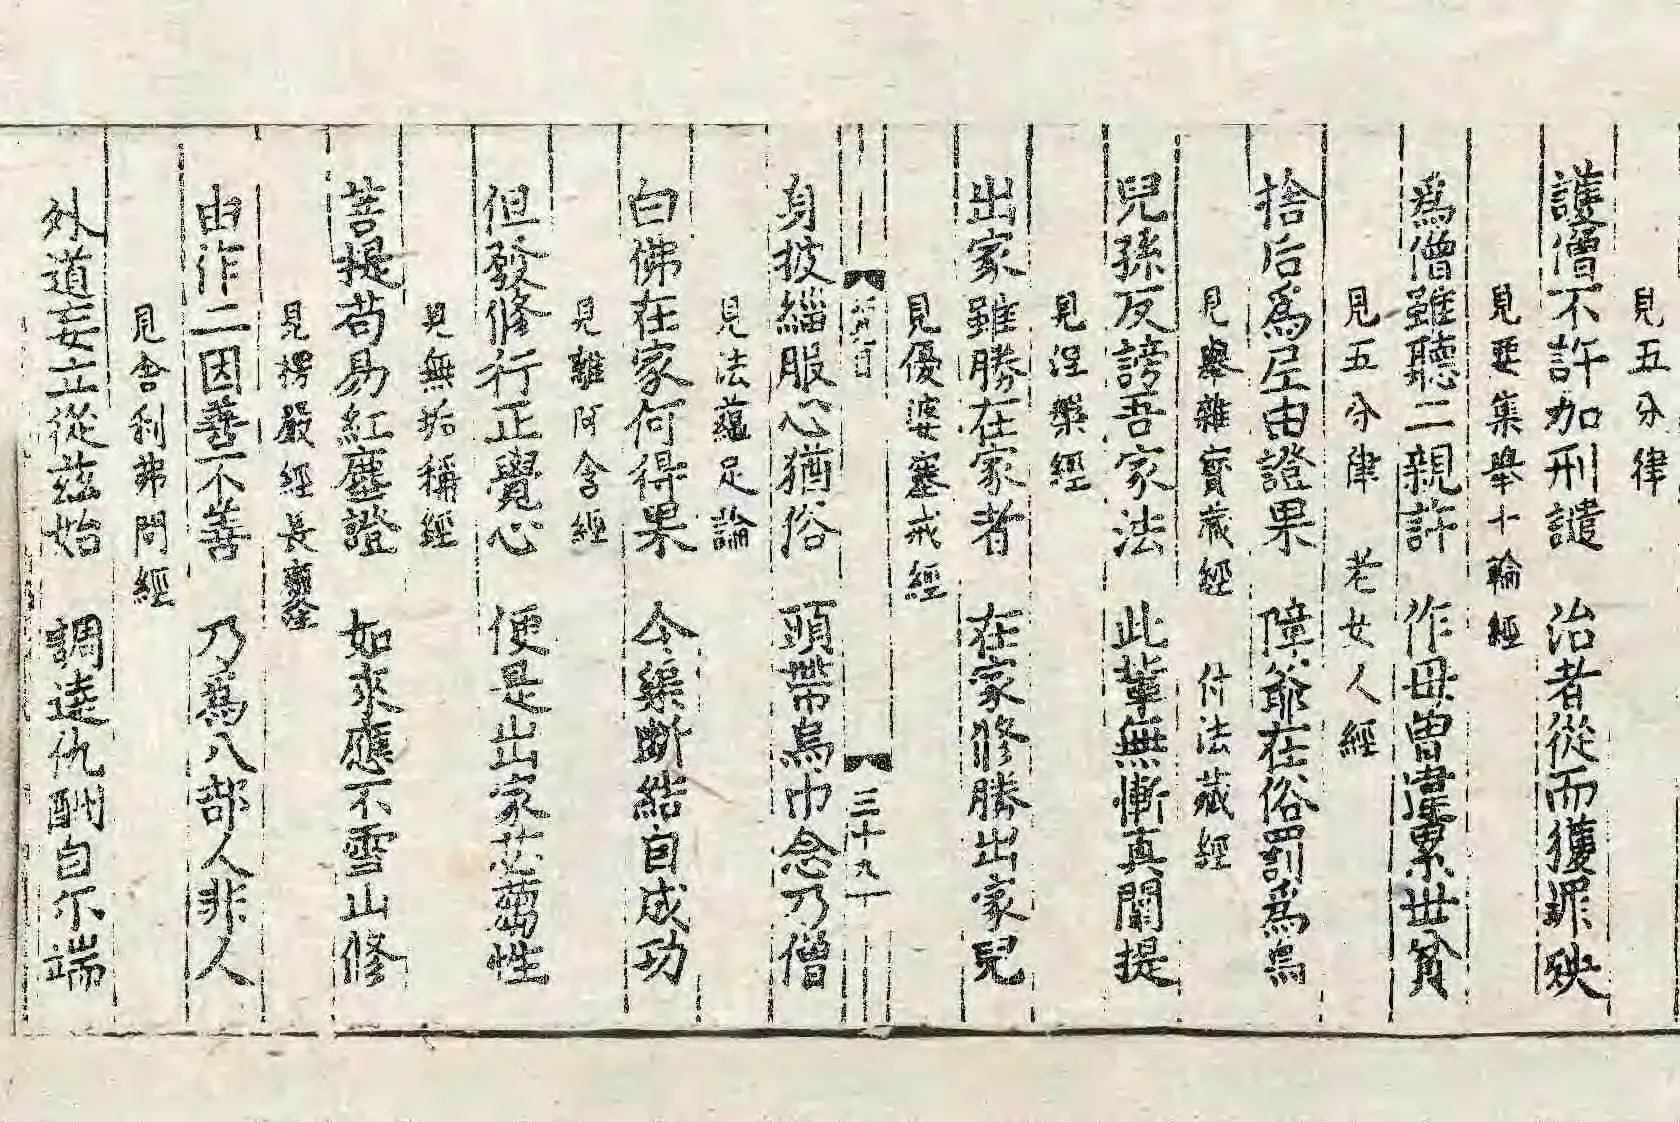 見五分律
護僧不許加刑譴 治者從而獲罪殃
見要集舉十輪經
為僧雖聽二親許 作毋曾憲累世貧
見五分律 老女人經
捨后為尼由證果 障爺在俗罰為烏
見舉雜寶藏經 付法藏經
兒孫反謗吾家法 此輩無慚真闡提
見涅槃經
出家雖勝在家者 在家修勝出家兒
見優婆塞戒經
三十九
身披緇服心猶俗 頭帶烏巾念乃僧
見法蘊足論
白佛在家何得果 今緣斷結自成功
見離阿含經
但發修行正覺心 便是出家苾蒭性
見無垢稱經
菩提苟易紅塵證 如來應不雪山修
見楞嚴經長慶
由作二因善不善 乃為八部人非人
見舍利弗問經
外道妄立從茲始 調達仇酬自尒端